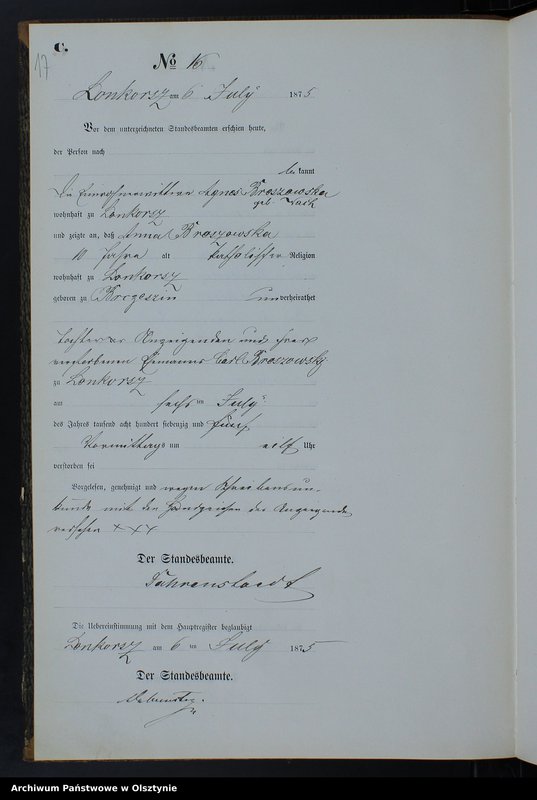 C.
17
No 16
Lonkorsz am 6 July 1875
Vor dem unterzeichneten Standesbeamten erschien heute,
der Person nach
be kannt
die Einwohnerwittwe Agnes Broszowska
geb.
wohnhaft zu Lonkorsz
und zeigte an, daß Anna Broszowska
10 Jahre alt katholischer Religion
wohnhaft zu Lonkorsz
geboren zu unverheirathet
Tochter der Anzeigenden und ihres
verstorbenen Ehemannes Carl Broszowsky
zu Lonkorsz
am sechs ten July
des Jahres tausend acht hundert siebenzig und fünf
Vormittags um eilf Uhr
verstorben sei
Vorgelesen, genehmigt und wegen Schreibensun-
kunde mit den Handzeichen der Anzeigende
versehen XXX
Der Standesbeamte.
Die Uebereinstimmung mit dem Hauptregister beglaubigt
Lonkorsz am 6 ten July 1875
Der Standesbeamte.
Archiwum Państwowe w Olsztynie